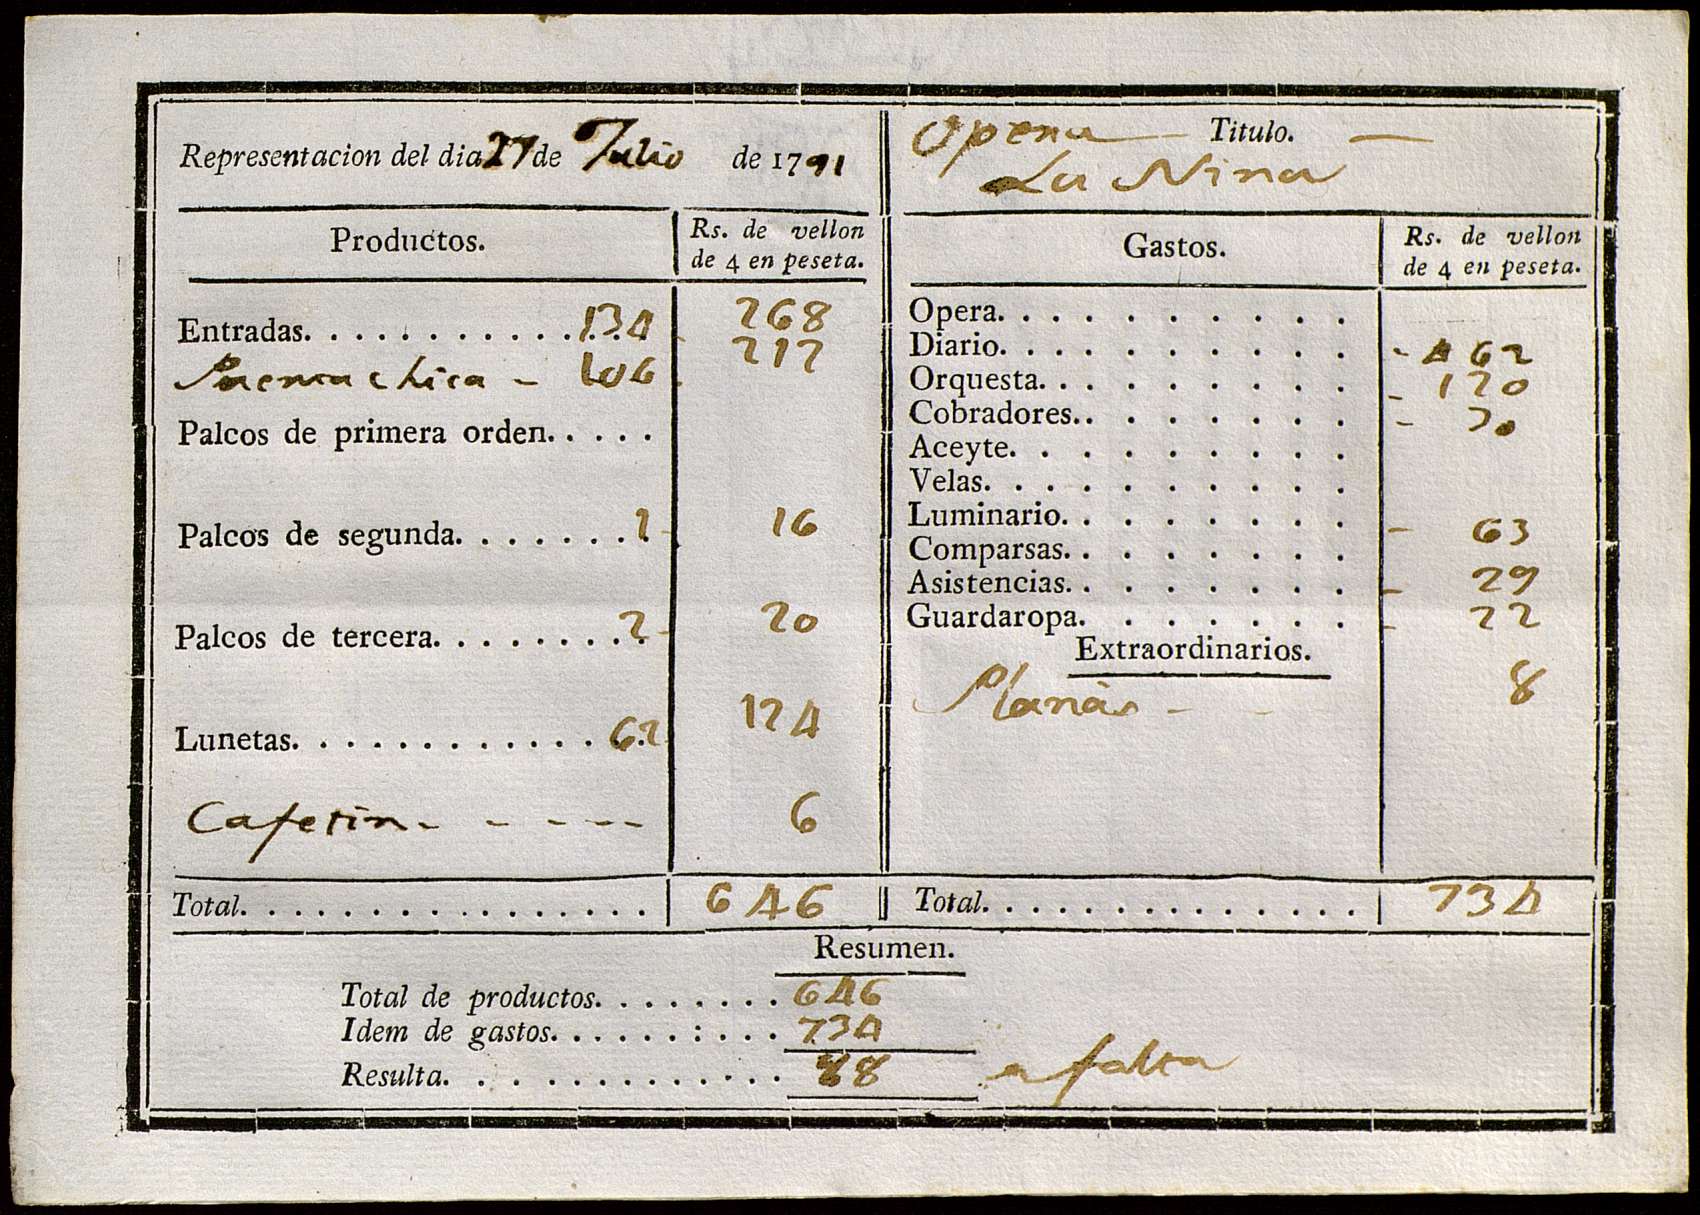 Representacion del dia 27 de Julio de 1791
Opera Titulo.
La Nina
Productos.
Rs. de vellon
de 4 en peseta.
Gastos.
Rs. de vellon
de 4 en peseta.
Entradas. 134 268
Puerta chica 106 212
Palcos de primera orden.
Palcos de segunda. 1 16
Palcos de tercera. 2 20
Lunetas. 62 124
Cafetin 6
Total. 646
Opera.
Diario. 462
Orquesta. 120
Cobradores. 30
Aceyte.
Velas.
Luminario. 63
Comparsas.
Asistencias. 29
Guardaropa. 22
Extraordinarios.
8
Total. 734
Resumen.
Total de productos. 646
Idem de gastos. 734
Resulta. 88 falta